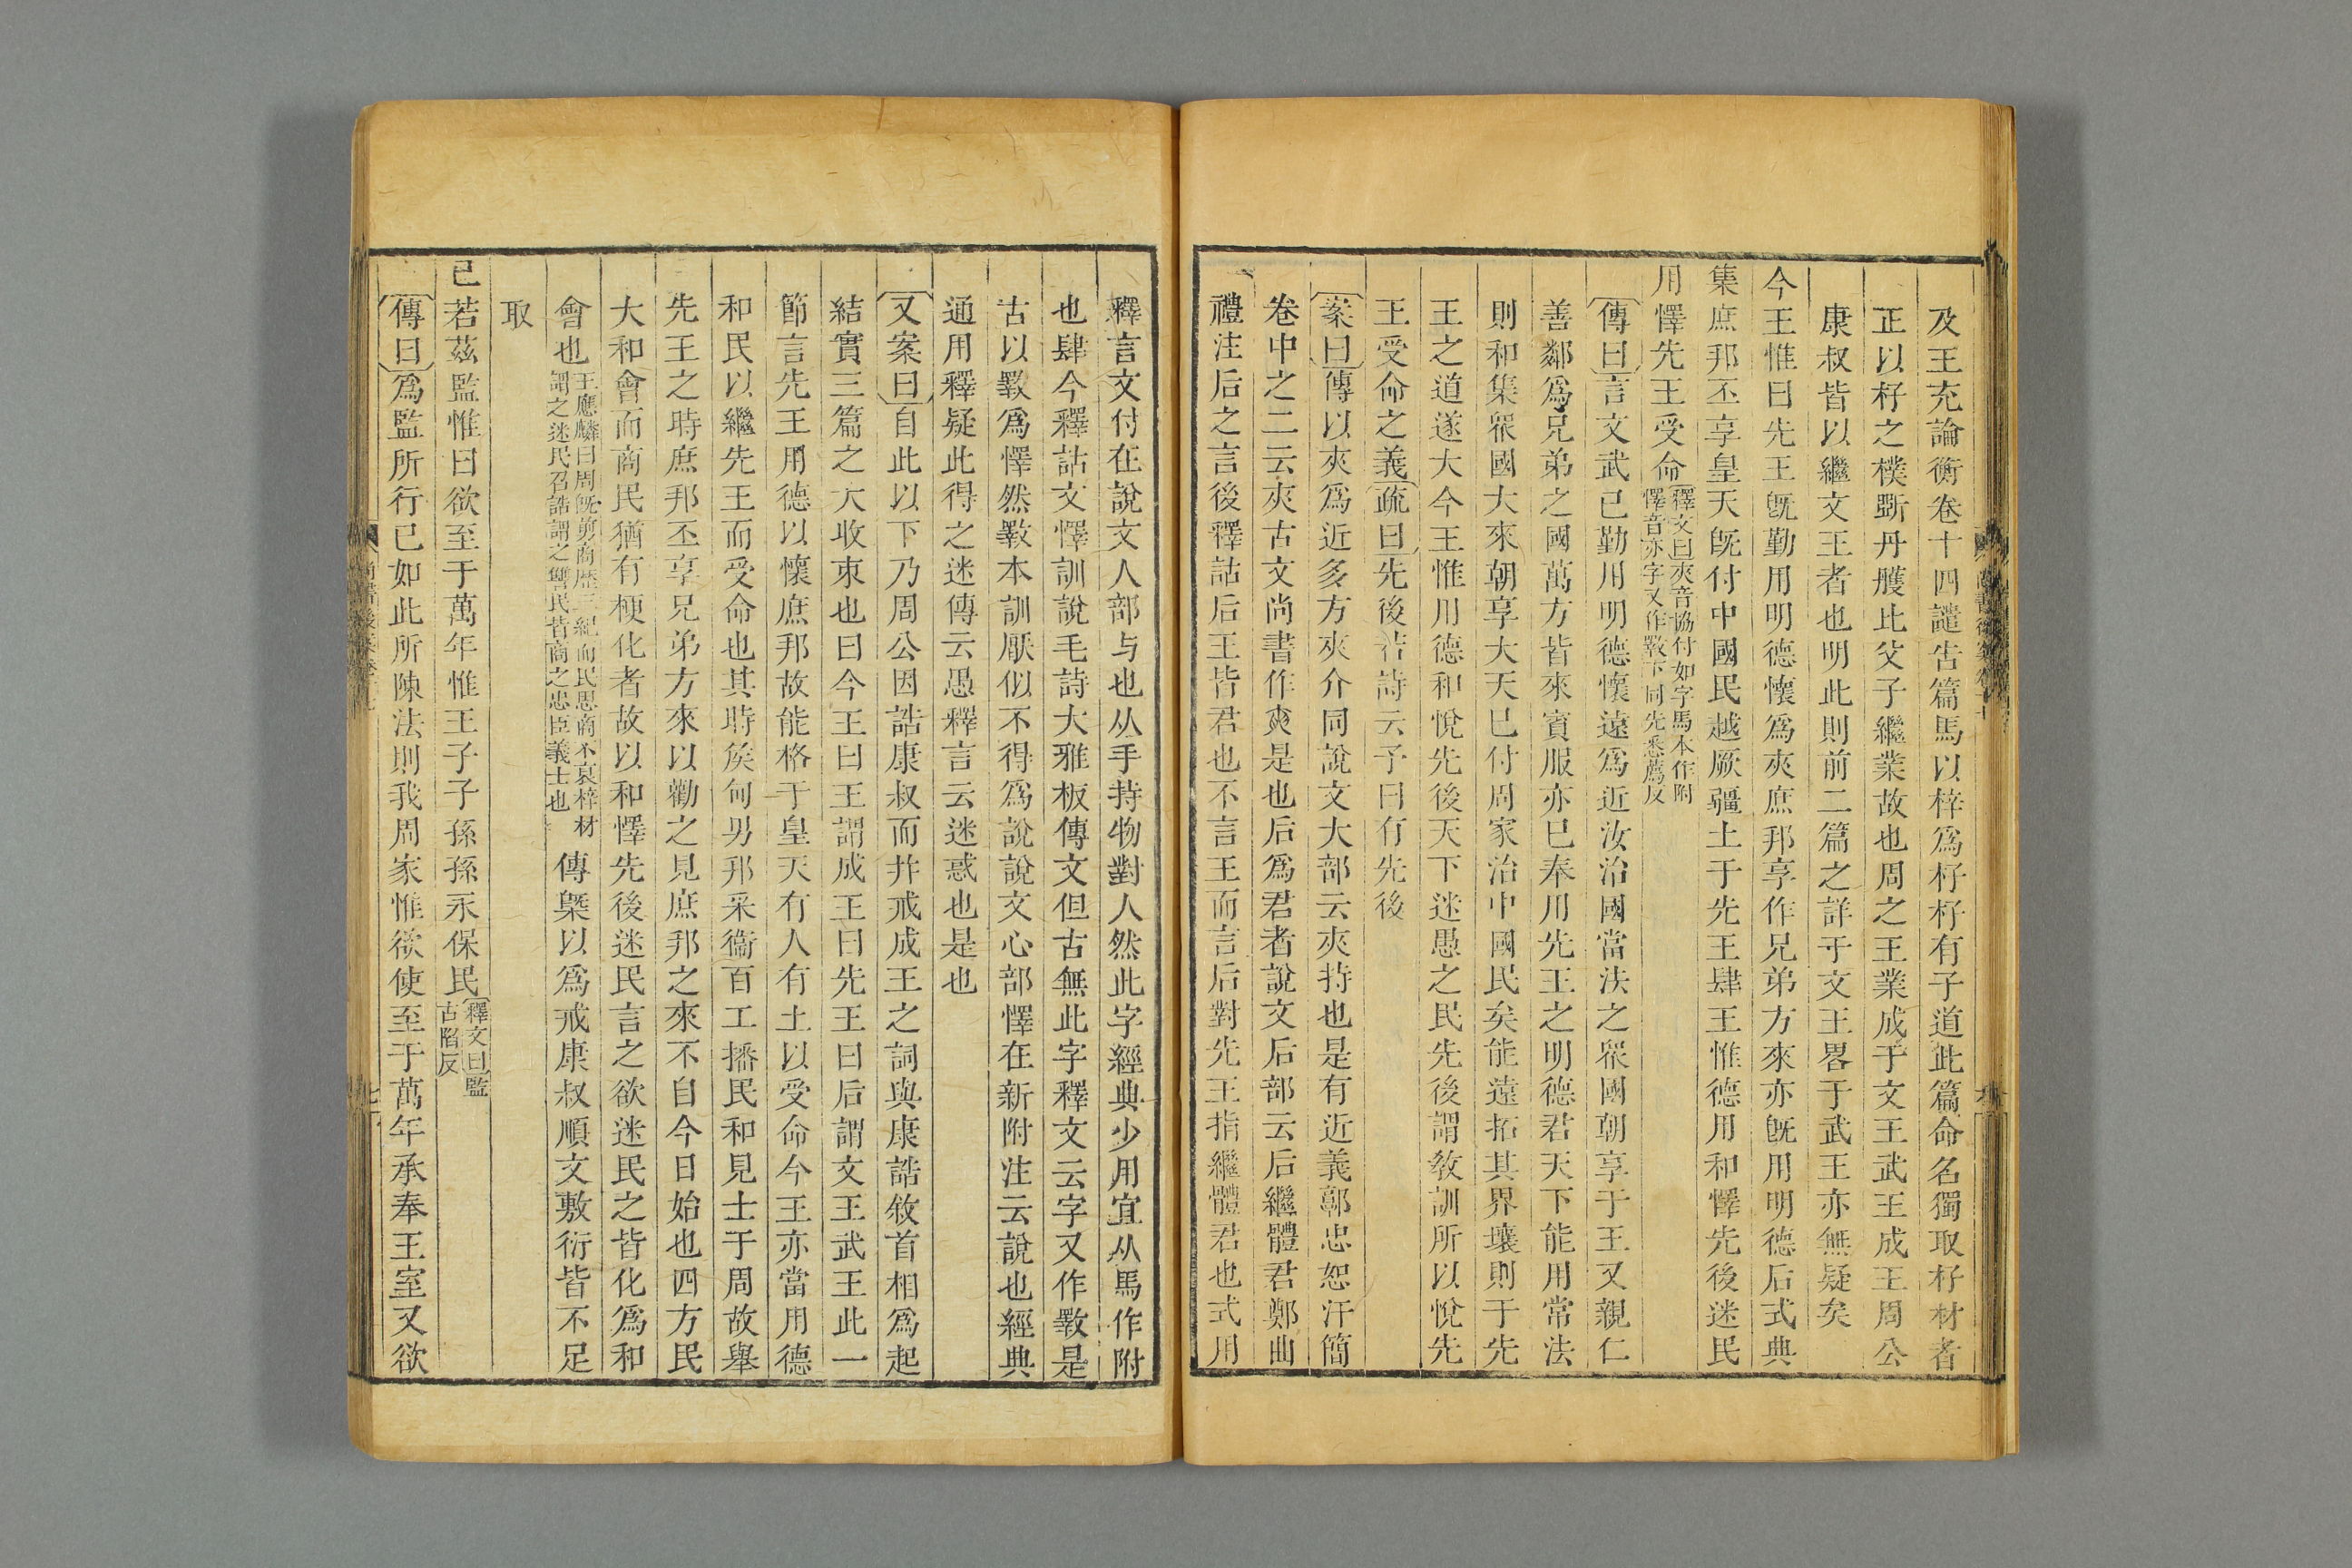 及王充論衡卷十四譴告篇馬以梓爲杍杍有子道此篇命名獨取杍材者
正以杍之樸斲丹雘比父子繼業故也周之王業成于文王武王成王周公
康叔皆以繼文王者也明此則前二篇之詳于文王畧于武王亦無疑矣
今王惟曰先王旣勤用明德懷爲夾庶邦享作兄弟方來亦旣用明德后式典
集庶邦丕享皇天旣付中國民越厥疆土于先王肆王惟德用和懌先後迷民
用懌先王受命釋文曰夾音協付如字馬本作附
懌音亦字又作斁下同先悉薦反
傳曰言文武已勤用明德懷遠爲近汝治國當法之衆國朝享于王又親仁
善鄰爲兄弟之國萬方皆來賓服亦已奉用先王之明德君天下能用常法
則和集衆國大來朝享大天已付周家治中國民矣能遠拓其界壤則于先
王之道遂大今王惟用德和悅先後天下迷愚之民先後謂敎訓所以悅先
王受命之義疏曰先後若詩云予曰有先後
案曰傳以夾爲近多方夾介同說文大部云夾持也是有近義郭忠恕汗簡
卷中之二云夾古文尚書作㚒是也后爲君者說文后部云后繼體君鄭曲
禮注后之言後釋詁后王皆君也不言王而言后對先王指繼體君也式用
釋言文付在說文人部与也从手持物對人然此字經典少用宜从馬作附
也肆今釋詁文懌訓說毛詩大雅板傳文但古無此字釋文云字又作斁是
古以斁爲懌然斁本訓厭似不得爲說說文心部懌在新附注云說也經典
通用釋疑此得之迷傳云愚釋言云迷惑也是也
又案曰自此以下乃周公因誥康叔而幷戒成王之詞與康誥敘首相爲起
結實三篇之大收束也曰今王曰王謂成王曰先王曰后謂文王武王此一
節言先王用德以懷庶邦故能格于皇天有人有土以受命今王亦當用德
和民以繼先王而受命也其時矦甸男邦采衞百工播民和見士于周故舉
先王之時庶邦丕享兄弟方來以勸之見庶邦之來不自今日始也四方民
大和會而商民猶有梗化者故以和懌先後迷民言之欲迷民之皆化爲和
會也王應麟曰周旣剪商歷三紀而民思商不衰梓材
謂之迷民召誥謂之讐民皆商之忠臣義士也傳槩以爲戒康叔順文敷衍皆不足
取
已若茲監惟曰欲至于萬年惟王子子孫孫永保民釋文曰監
古陷反
傳曰爲監所行已如此所陳法則我周家惟欲使至于萬年承奉王室又欲